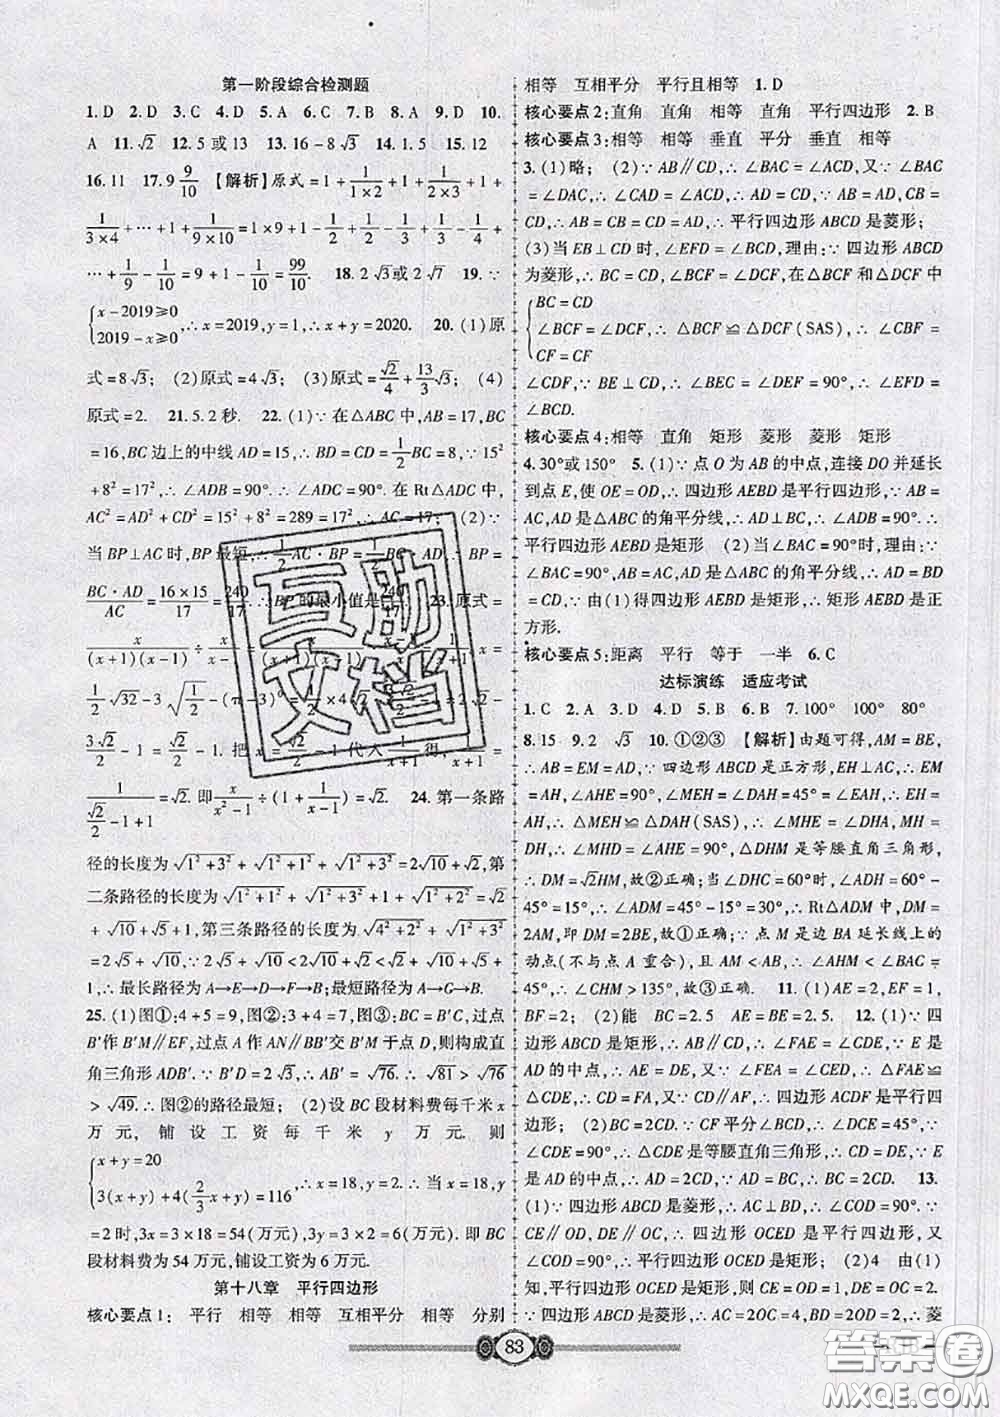 第一阶段综合检测题
1. D 2. D 3. C 4. D 5. C 6. B 7. B 8. A 9. D 10.
A 11. √2 12. 5 或 13 13. 16－8√3 14. 1.5 15. 12
16. 11 17. 9 9/10 【解析】原式＝1＋1/(1×2)＋1＋1/(2×3)＋1＋
1/(3×4)＋…＋1＋1/(9×10)＝1×9＋1－1/2＋1/2－1/3＋1/3－1/4＋
…＋1/9－1/10＝9＋1－1/10＝99/10. 18. 2√3或2√7 19. ∵
{x－2019≥0
2019－x≥0 ,∴x＝2019,y＝1,∴x＋y＝2020. 20. (1)原
式＝8√3； (2)原式＝4√3； (3)原式＝√2/4＋13/3√3； (4)
原式＝2. 21. 5.2秒. 22. (1)∵在△ABC中,AB＝17,BC
＝16,BC边上的中线AD＝15,∴BD＝CD＝1/2BC＝8,∵15²
＋8²＝17²,∴∠ADB＝90°. ∴∠ADC＝90°. 在Rt△ADC中,
AC²＝AD²＋CD²＝15²＋8²＝289＝17²,∴AC＝17； (2)∵
当BP⊥AC时,BP最短,∴1/2AC·BP＝1/2BC·AD,∴BP＝
BC·AD/AC＝16×15/17＝240/17. ∴BP的最小值是240/17. 23. 原式＝
x/((x＋1)(x－1))÷x/(x－1)
1/2√32－3√(1/2)－(π－3)⁰＝1/2×4√2
3√2/2－1＝√2/2－1. 把x＝√2/2－1代入1/(x＋1)得,1/(x＋1)＝
1/(√2/2－1＋1)＝√2. 即x/(x²－1)÷(1＋1/(x－1))＝√2. 24. 第一条路
径的长度为√(1²＋3²)＋√(1²＋1²)＋√(1²＋3²)＝2√10＋√2,第
二条路径的长度为√(1²＋1²)＋√(1²＋3²)＋√(1²＋2²)＝√2
＋√10＋√5＋1,第三条路径的长度为√(4²＋2²)＋√(1²＋3²)
＝2√5＋√10,∵2√5＋√10＜2√10＋√2＜√2＋√10＋√5＋
1,∴最长路径为A→E→D→F→B;最短路径为A→G→B.
25. (1)图①:4＋5＝9,图②:3＋4＝7,图③:BC＝B′C,过点
B′作B′M∥EF,过点A作AN∥BB′交B′M于点D,则构成直
角三角形ADB′. ∵B′D＝2√3,∴AB′＝√76. ∵√81＞√76
＞√49. ∴图②的路径最短； (2)设BC段材料费每千米x
万元,铺设工资每千米y万元. 则
{x＋y＝20
3(x＋y)＋4(2/3x＋y)＝116 ,∴x＝18,y＝2. ∴当x＝18,y
＝2时,3x＝3×18＝54(万元),3y＝3×2＝6(万元). 即BC
段材料费为54万元,铺设工资为6万元.
第十八章 平行四边形
核心要点1: 平行 相等 相等 互相平分 相等 分别
相等 互相平分 平行且相等 1. D
核心要点2:直角 直角 相等 直角 平行四边形 2. B
核心要点3:相等 相等 垂直 平分 垂直 相等
3. (1)略； (2)∵AB∥CD,∴∠BAC＝∠ACD,又∵∠BAC
＝∠DAC,∴∠CAD＝∠ACD,∴AD＝CD,∵AB＝AD,CB＝
CD,∴AB＝CB＝CD＝AD,∴平行四边形ABCD是菱形；
(3)当EB⊥CD时,∠EFD＝∠BCD,理由:∵四边形ABCD
为菱形,∴BC＝CD,∠BCF＝∠DCF,在△BCF和△DCF中
{BC＝CD
∠BCF＝∠DCF,∴△BCF≌△DCF(SAS),∴∠CBF＝
CF＝CF
∠CDF,∵BE⊥CD,∴∠BEC＝∠DEF＝90°,∴∠EFD＝
∠BCD.
核心要点4:相等 直角 矩形 菱形 菱形 矩形
4. 30°或150° 5. (1)∵点O为AB的中点,连接DO并延长
到点E,使OE＝OD,∴四边形AEBD是平行四边形,∵AB＝
AC,AD是△ABC的角平分线,∴AD⊥BC,∴∠ADB＝90°,∴
平行四边形AEBD是矩形 (2)当∠BAC＝90°时,理由:∵
∠BAC＝90°,AB＝AC,AD是△ABC的角平分线,∴AD＝BD
＝CD,∵由(1)得四边形AEBD是矩形,∴矩形AEBD是正
方形.
核心要点5:距离 平行 等于 一半 6. C
达标演练 适应考试
1. C 2. A 3. D 4. D 5. B 6. B 7. 100° 100° 80°
8. 15 9. 2 √3 10. ①②③ 【解析】由题可得,AM＝BE,
∴AB＝EM＝AD,∵四边形ABCD是正方形,EH⊥AC,∴EM
＝AH,∠AHE＝90°,∠MEH＝∠DAH＝45°＝∠EAH,∴EH＝
AH,∴△MEH≌△DAH(SAS),∴∠MHE＝∠DHA,MH＝
DH,∴∠MHD＝∠AHE＝90°,△DHM是等腰直角三角形,
∴DM＝√2HM,故②正确;当∠DHC＝60°时,∠ADH＝60°－
45°＝15°,∴∠ADM＝45°－15°＝30°,∴Rt△ADM中,DM＝
2AM,即DM＝2BE,故①正确;∵点M是边BA延长线上的
动点(不与点A重合),且AM＜AB,∴∠AHM＜∠BAC＝
45°,∴∠CHM＞135°,故③正确. 11. (1)AE＝2,EF＝1,
BF＝2; (2)能 BC＝2.5 AC＝1.5 12. (1)∵四
边形ABCD是矩形,∴AB∥CD,∴∠FAE＝∠CDE,∵E是
AD的中点,∴AE＝DE,又∵∠FEA＝∠CED,∴△FAE≌
△CDE,∴CD＝FA,又∵CD∥AF,∴四边形ACDF是平行四
边形； (2)BC＝2CD. ∵CF平分∠BCD,∴∠DCE＝45°,∵
∠CDE＝90°,∴△CDE是等腰直角三角形,∴CD＝DE,∵E
是AD的中点,∴AD＝2CD,∵AD＝BC,∴BC＝2CD. 13.
(1)∵四边形ABCD是菱形,∴AC⊥BD,∴∠COD＝90°. ∵
CE∥OD,DE∥OC,∴四边形OCED是平行四边形,又
∠COD＝90°,∴平行四边形OCED是矩形； (2)4 由(1)
知,平行四边形OCED是矩形,则CE＝OD＝1,DE＝OC＝2.
∵四边形ABCD是菱形,∴AC＝2OC＝4,BD＝2OD＝2,∴菱
83
互助文档
答案圈
MXQE.COM